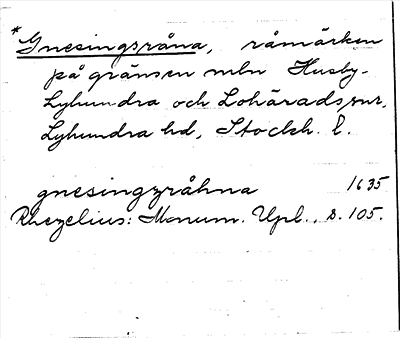 *Gnesingsråna, råmärken
på gränsen mln Husby-
Lyhundra och Lohärads snr,
Lyhundra hd, Stockh. l.
gnesingzråhna 1635
Rhezelius: Monum. Upl., s. 105.